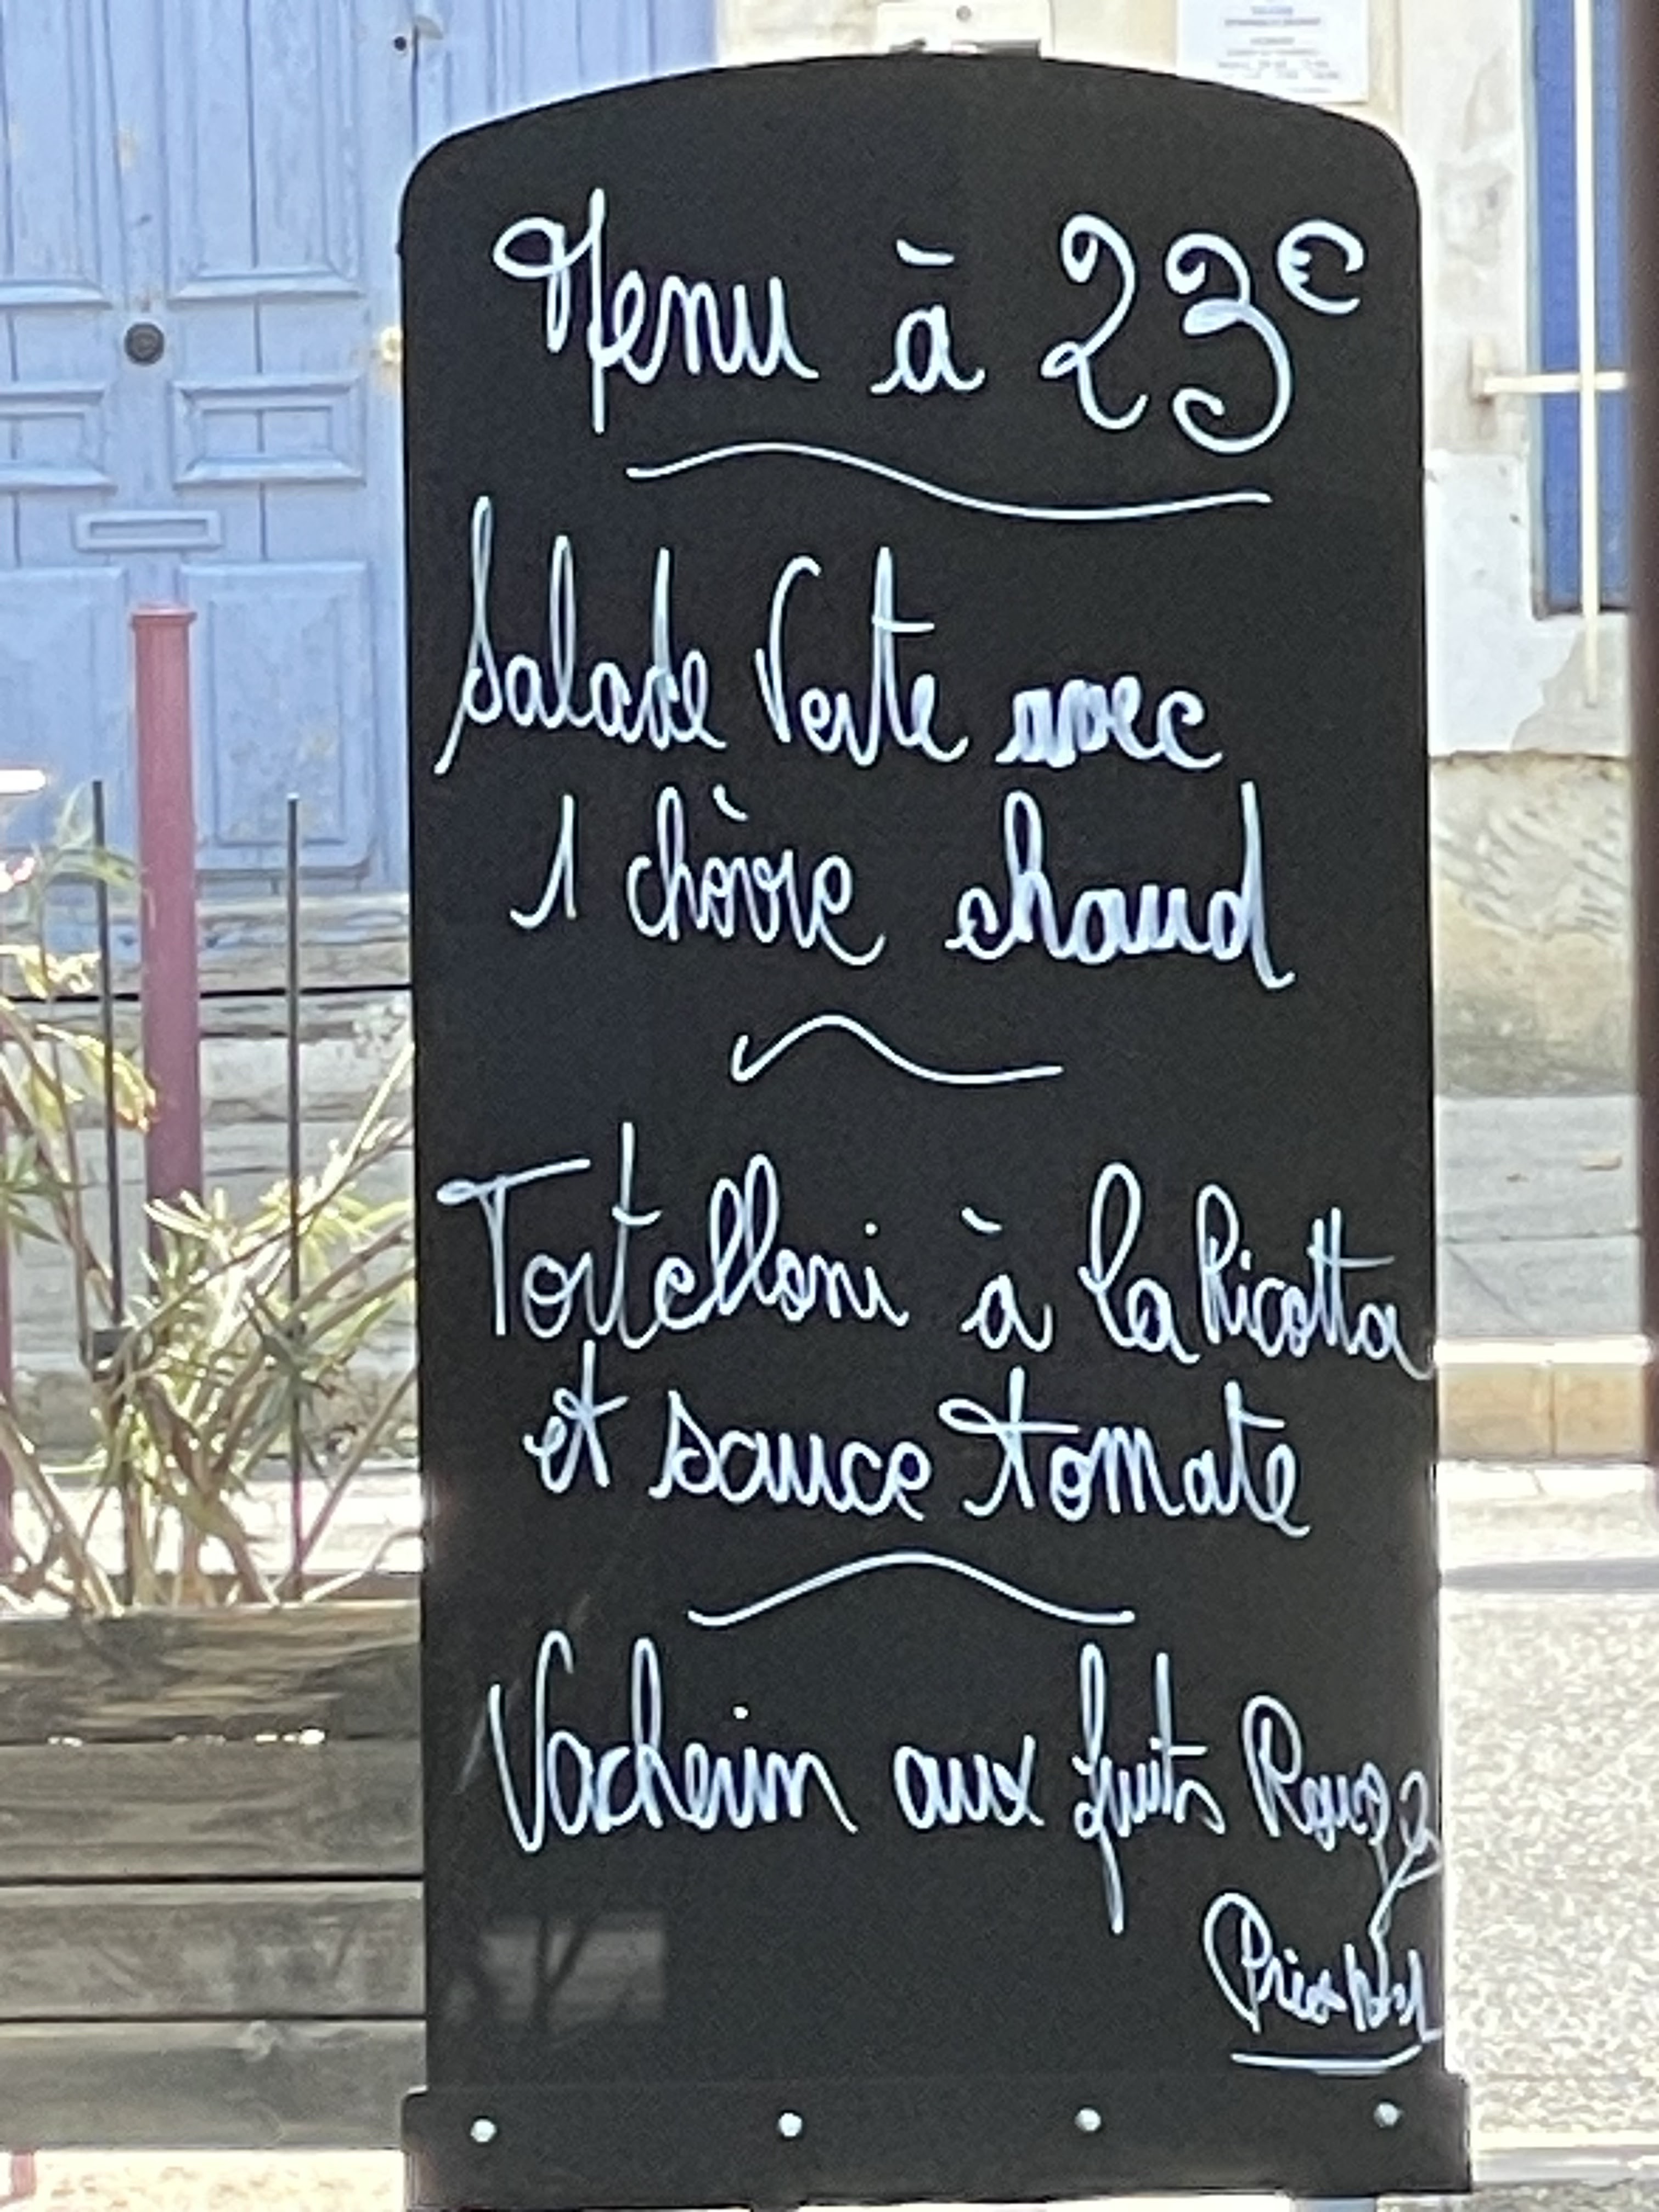 Menu à 23€
Salade Verte avec
1 chèvre chaud
Tortelloni à la Ricotta
et sauce tomate
Vacherin aux fruits Rouges
Prix Net